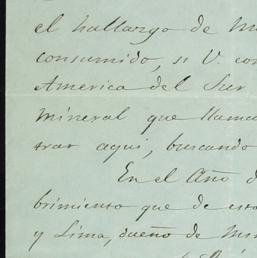 el hallazgo de
consumido, si V. co
America del Sur
mineral que llama
trar aqui, buscando
En el Año d
brimiento que de est
y Lima, dueño de Min